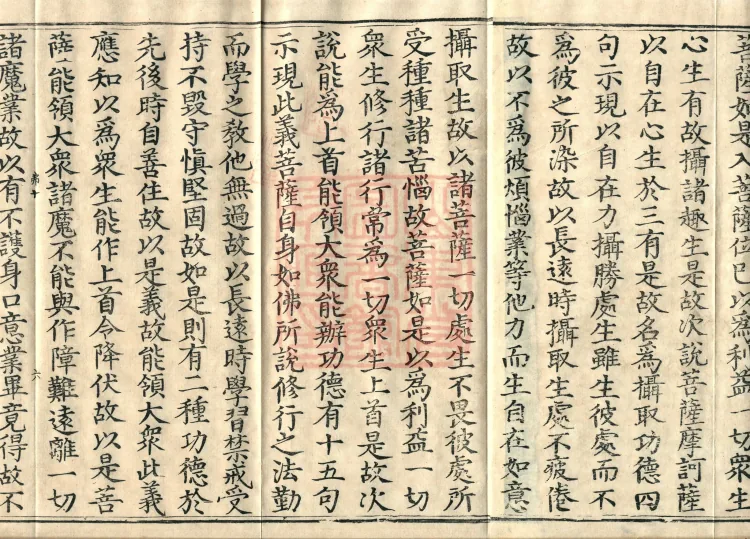 菩薩如是入菩薩位已以為利益一切衆生
心生有故攝諸趣生是故次說菩薩摩訶薩
以自在心生於三有是故名為攝取功德四
句示現以自在力攝勝處生雖生彼處而不
為彼之所染故以長遠時攝取生處不疲倦
故以不為彼煩惱業等他力而生自在如意
攝取生故以諸菩薩一切處生不畏彼處所
受種種諸苦惱故菩薩如是以為利益一切
衆生修行諸行常為一切衆生上首是故次
說能為上首能領大衆能辦功德有十五句
示現此義菩薩自身如佛所說修行之法勤
而學之教他無過故以長遠時學習禁戒受
持不毀守慎堅固故如是則有二種功德於
先後時自善住故以是義故能領大衆此義
應知以為衆生能作上首令降伏故以是菩
薩能領大衆諸魔不能與作障難遠離一切
弟十 六
諸魔業故以有不護身口意業畢竟得故不